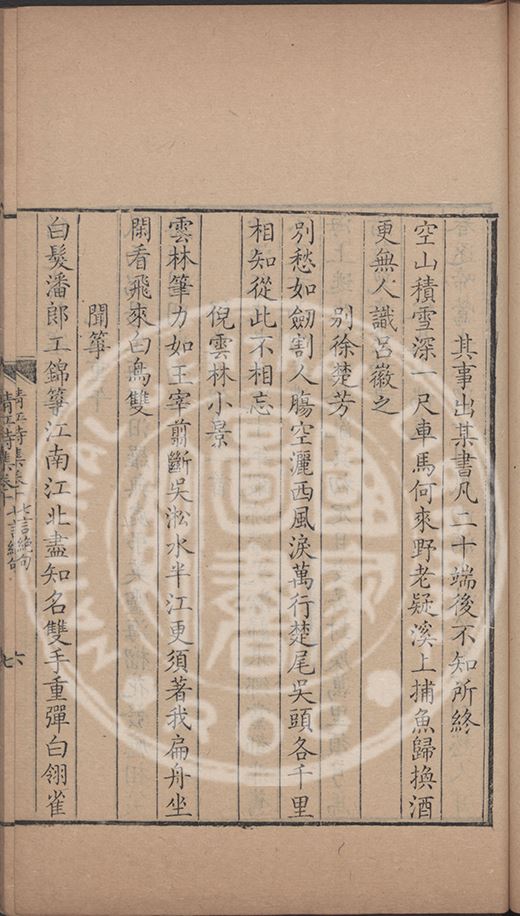 其事出某書凡二十端後不知所終
空山積雪深一尺車馬何來野老疑溪上捕魚歸換酒
更無人識呂徽之
別徐楚芳
別愁如劒割人腸空灑西風淚萬行楚尾吳頭各千里
相知從此不相忘
倪雲林小景
雲林筆力如王宰翦斷吳淞水半江更須著我扁舟坐
閑看飛來白鳥雙
聞箏
白髮潘郎工錦箏江南江北盡知名雙手重彈白翎雀
清江詩集卷十 七言絕句 六
清江詩集卷十 七言絕句 七